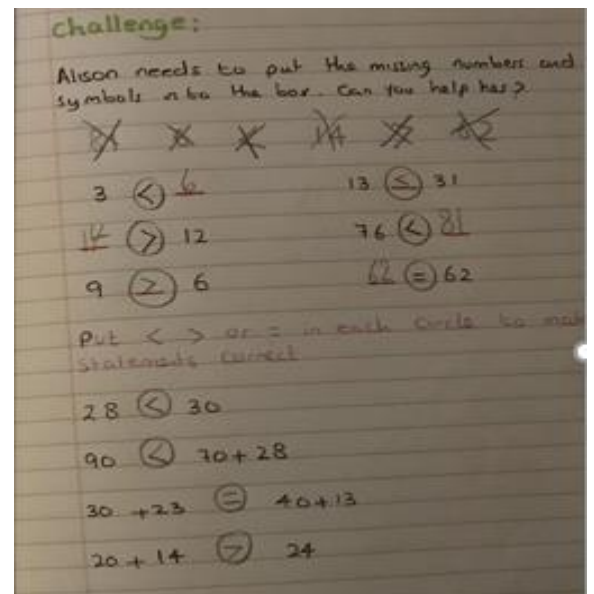 Challenge:
Alison needs to put the missing numbers and
symbols in to the box. Can you help has?
3 < 6 13 < 31
14 > 12 76 < 81
9 > 6 62 = 62
Put < > or = in each circle to mak
statements correct
28 < 30
90 < 70+28
30 +23 = 40+13
20 + 14 > 24